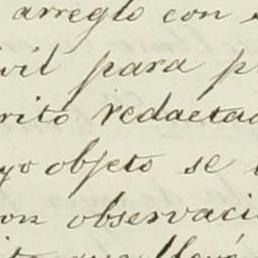 arreglo con
vil para p
rito redacta
yo objeto se
on observaci
que llevó